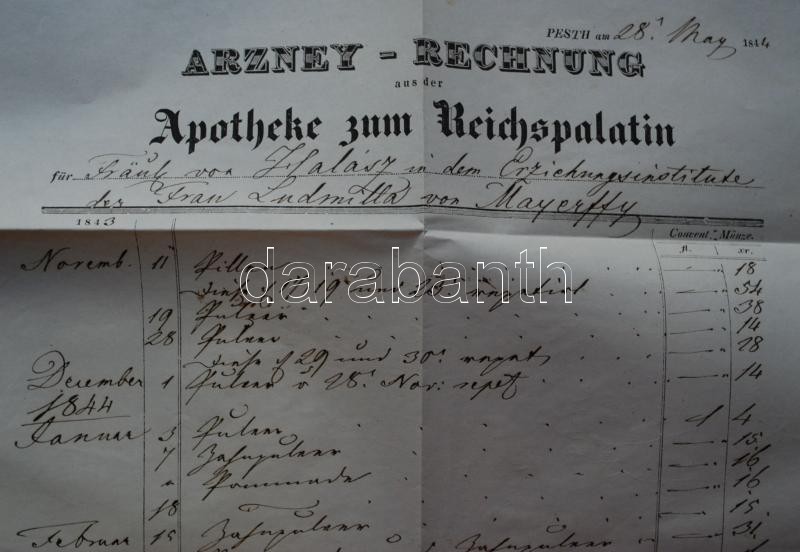 PESTH am 28t May 1844
ARZNEY - RECHNUNG
aus der
Apotheke zum Reichspalatin
für Fräul. von Halász in dem Erziehungsinstitute
der Frau Ludmilla von Mayerffy
1843 Convent. Münze.
fl. xr.
Novemb. 11 Pillen 18
diese d 19 und 25t repetirt 54
19 Pulver 38
28 Pulver 14
diese d 29 und 30t repet 28
December 1 Pulver v 28t Nov: repet 14
1844
Januar 3 Pulver 1 4
7 Zahnpulver 15
" Pommade 16
16
18 15
Februar 15 Zahnpulver 31
darabanth